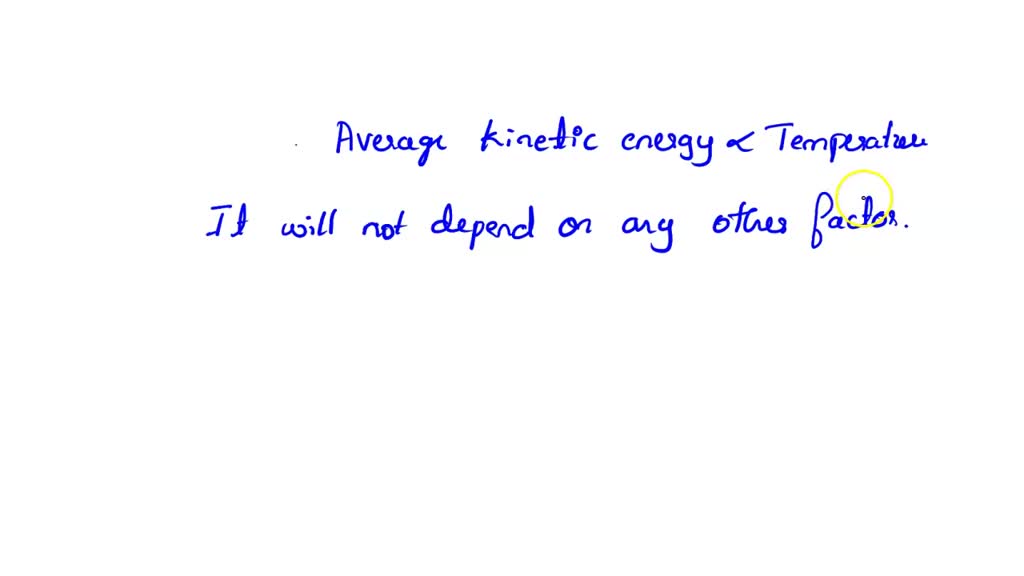 Average kinetic energy ∝ Temperature
It will not depend on any other factor.